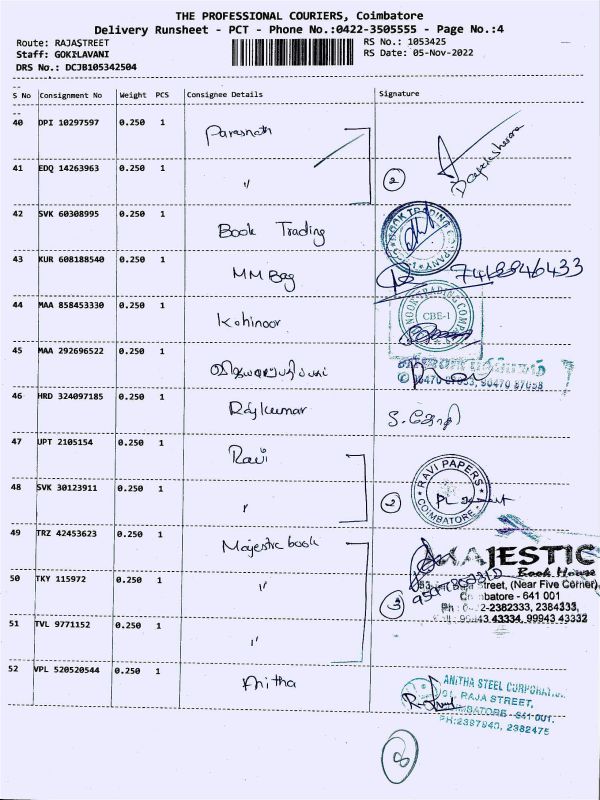 THE PROFESSIONAL COURIERS, Coimbatore
Delivery Runsheet - PCT - Phone No.:0422-3505555 - Page No.:4
Route: RAJASTREET RS No.: 1053425
Staff: GOKILAVANI RS Date: 05-Nov-2022
DRS No.: DCJB105342504
S No Consignment No Weight PCS Consignee Details Signature
40 DPI 10297597 0.250 1 Paresnath
41 EDQ 14263963 0.250 1 " 2
42 SVK 60308995 0.250 1 Book Trading
BOOK TRADING COMPANY
43 KUR 608188540 0.250 1 MM Bag
44 MAA 858453330 0.250 1 Kohinoor
CBE-1
45 MAA 292696522 0.250 1
90470 87058
46 HRD 324097185 0.250 1 Rajkumar
47 UPT 2105154 0.250 1 Ravi
RAVI PAPERS
COIMBATORE
48 SVK 30123911 0.250 1 " 2
49 TRZ 42453623 0.250 1 Majestic book
MAJESTIC
Book House
Street, (Near Five Corner),
50 TKY 115972 0.250 1 " 3
Coimbatore - 641 001
Ph : 0422-2382333, 2384333,
Cell : 99443 43334, 99943 43332
51 TVL 9771152 0.250 1 "
52 VPL 520520544 0.250 1 Anitha
ANITHA STEEL CORPORATION
RAJA STREET,
COIMBATORE - 641 001.
PH:2397940, 2382475
8